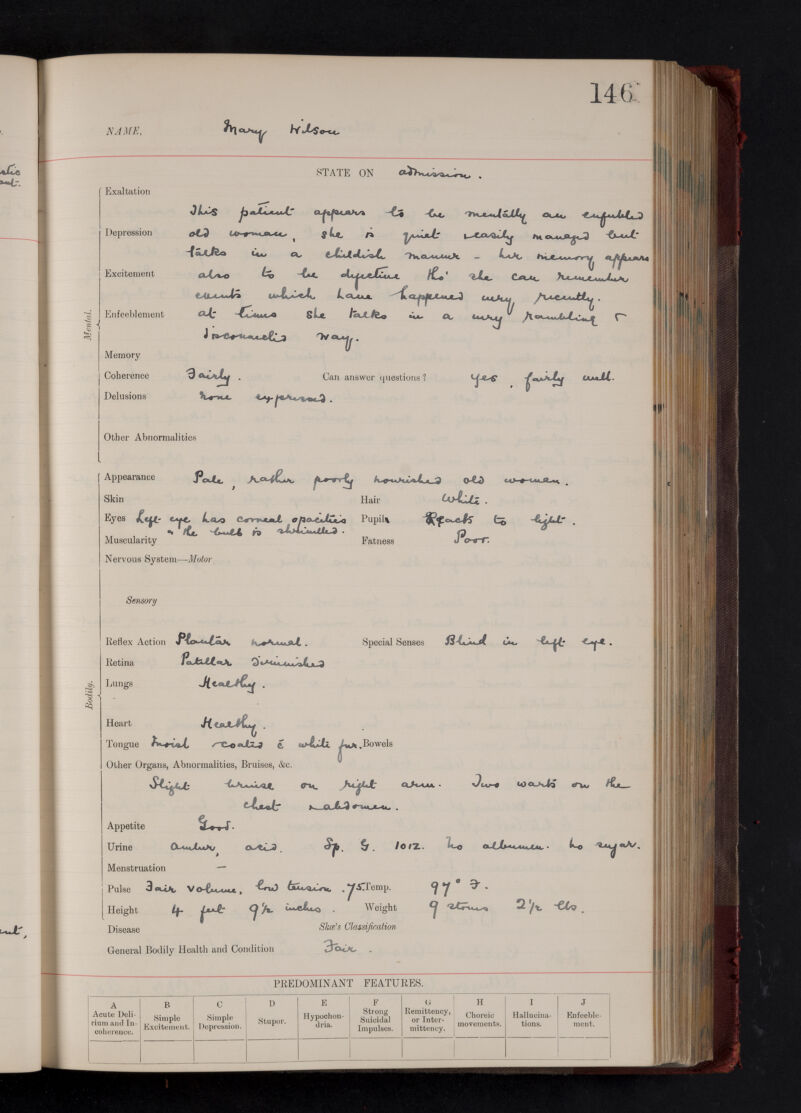 146
NAME, Mary Wilson
STATE ON admission.
Exaltation
This patient appears to be mentally an enfeebled
Depression old woman, she is quiet & easily managed but
talks in a childish manner - her memory appears
Excitement also to be defective tho' she can remember
events which have happened very recently.
Enfeeblement at times she talks in a very rambling &
disconnected way.
Mental.
Memory
Coherence Fairly. Can answer questions? yes, fairly well.
Delusions none expressed.
Other Abnormalities
Appearance Pale, rather poorly nourished old woman.
Skin Hair White.
Eyes Left eye has corneal opacities Pupils Reacts to light.
& the bulb is shrivelled.
Muscularity Fatness Poor.
Nervous System—Motor
Sensory
Reflex Action Plantar normal. Special Senses Blind in left eye.
Retina Patellar diminished
Lungs Healthy.
Bodily.
Heart Healthy.
Tongue moist & coated c̄ white fur. Bowels
Other Organs, Abnormalities, Bruises, &c.
Slight bruise on right arm. Two warts on the
chest & abdomen.
Appetite Good.
Urine Amber, acid. Sp. G. 1012. No albumen. No sugar.
Menstruation —
Pulse Fair volume, low tension. 75. Temp. 97° F.
Height 4 feet 9½ inches. Weight 9 stones 2½ lbs.
Disease Skæ's Classification
General Bodily Health and Condition Fair.
PREDOMINANT FEATURES.
A B C D E F G H I J
Acute Deli- Simple Simple Stupor. Hypochon- Strong Remittency, Choreic Hallucina- Enfeeble-
rium and In- Excitement. Depression. dria. Suicidal or Inter- movements. tions. ment.
coherence. Impulses. mittency.